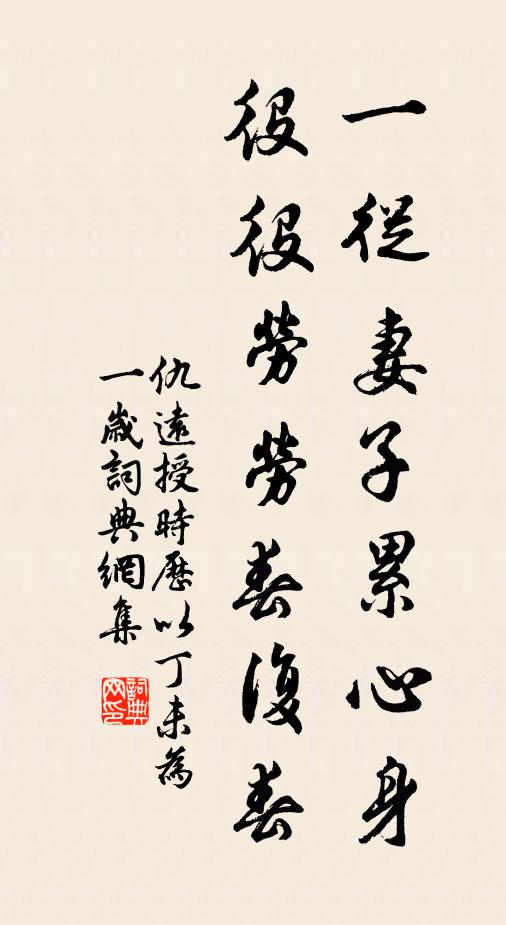 一從妻子累心身
役役勞勞春復春
仇遠授時歷以丁未為
一歲詞典網集
詞典網印